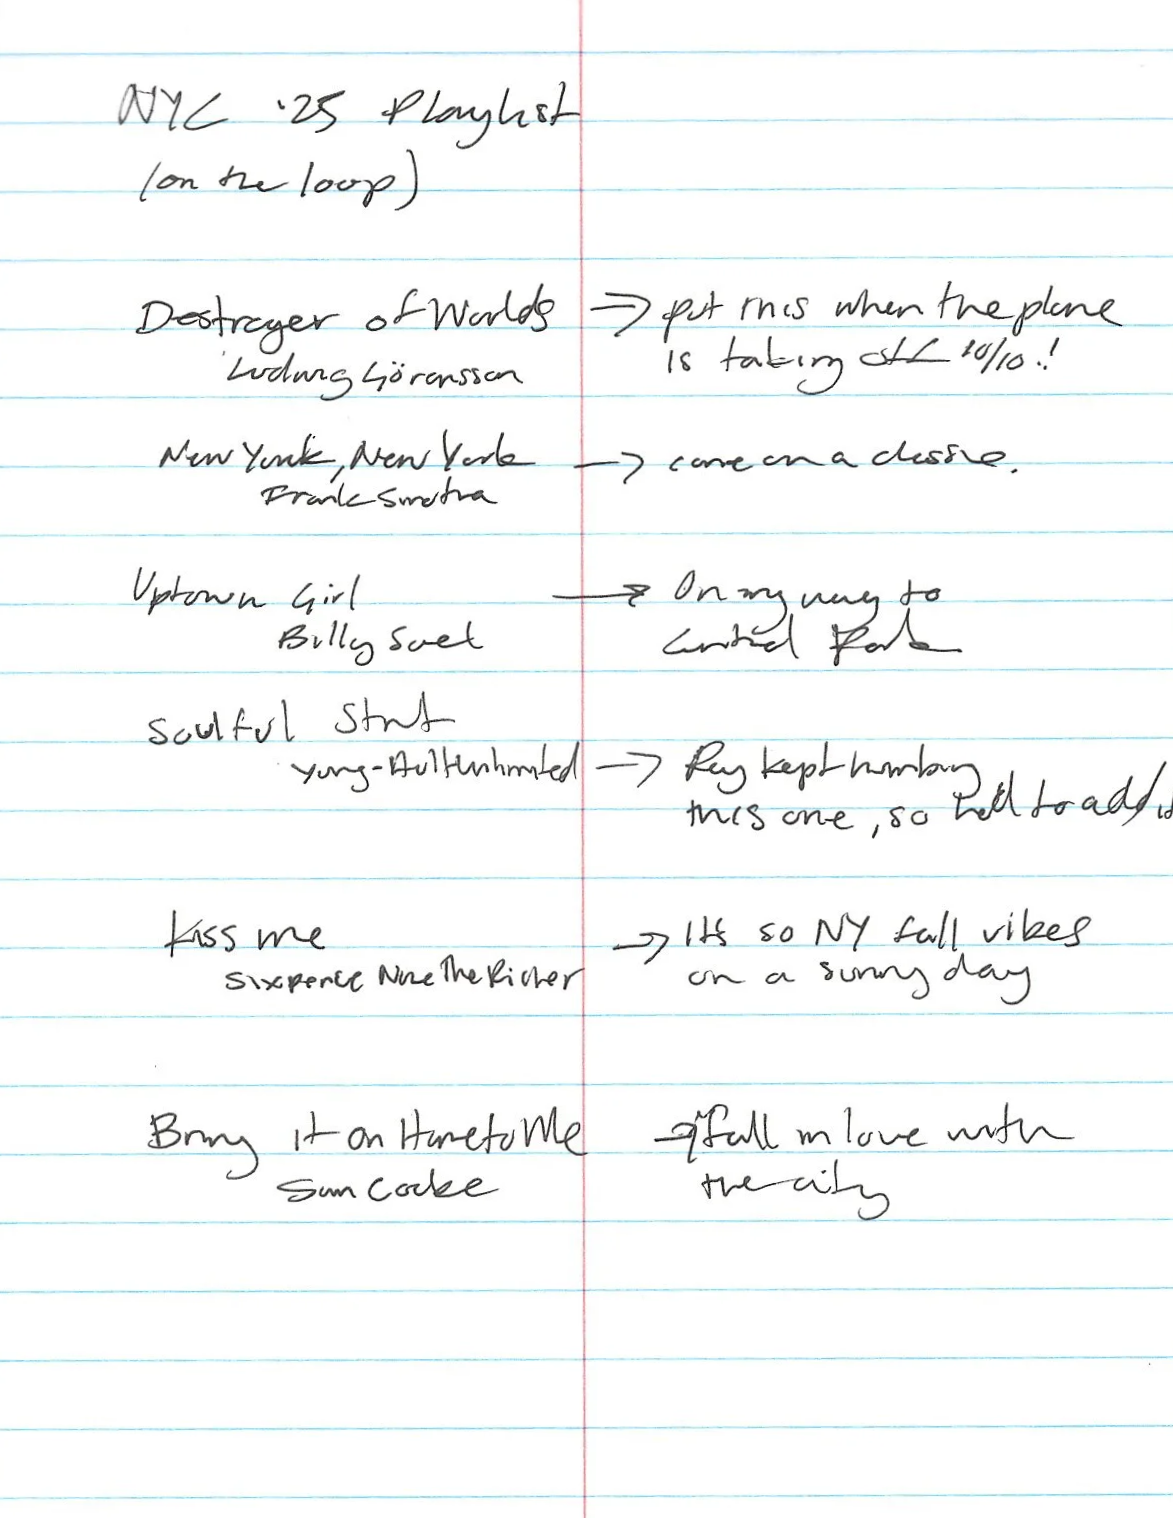 NYC '25 Playlist
(on the loop)
Destroyer of Worlds → put this when the plane
Ludwig Göransson is taking off 10/10.!
New York, New York → come on a classic.
Frank Sinatra
Uptown Girl → On my way to
Billy Joel Central Park
Soulful Strut
Young-Holt Unlimited → Ray kept humming
this one, so had to add it
Kiss me → It's so NY fall vibes
Sixpence None The Richer on a sunny day
Bring it on Home to Me → fall in love with
Sam Cooke the city